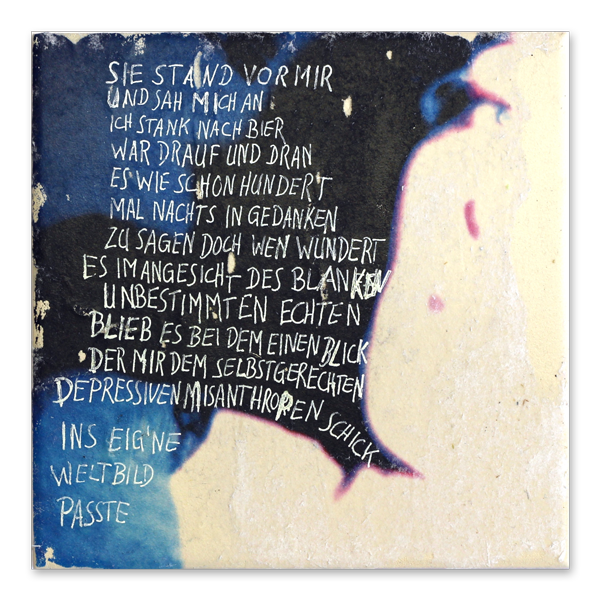 SIE STAND VOR MIR
UND SAH MICH AN
ICH STANK NACH BIER
WAR DRAUF UND DRAN
ES WIE SCHON HUNDERT
MAL NACHTS IN GEDANKEN
ZU SAGEN DOCH WEN WUNDERT
ES IM ANGESICHT DES BLANKEN
UNBESTIMMTEN ECHTEN
BLIEB ES BEI DEM EINEN BLICK
DER MIR DEM SELBSTGERECHTEN
DEPRESSIVEN MISANTHROPEN SCHICK
INS EIG'NE
WELTBILD
PASSTE